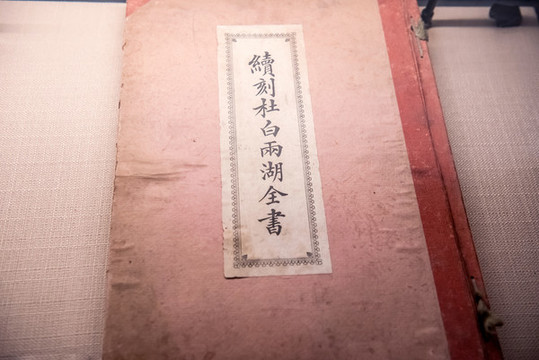 續刻杜白兩湖全書